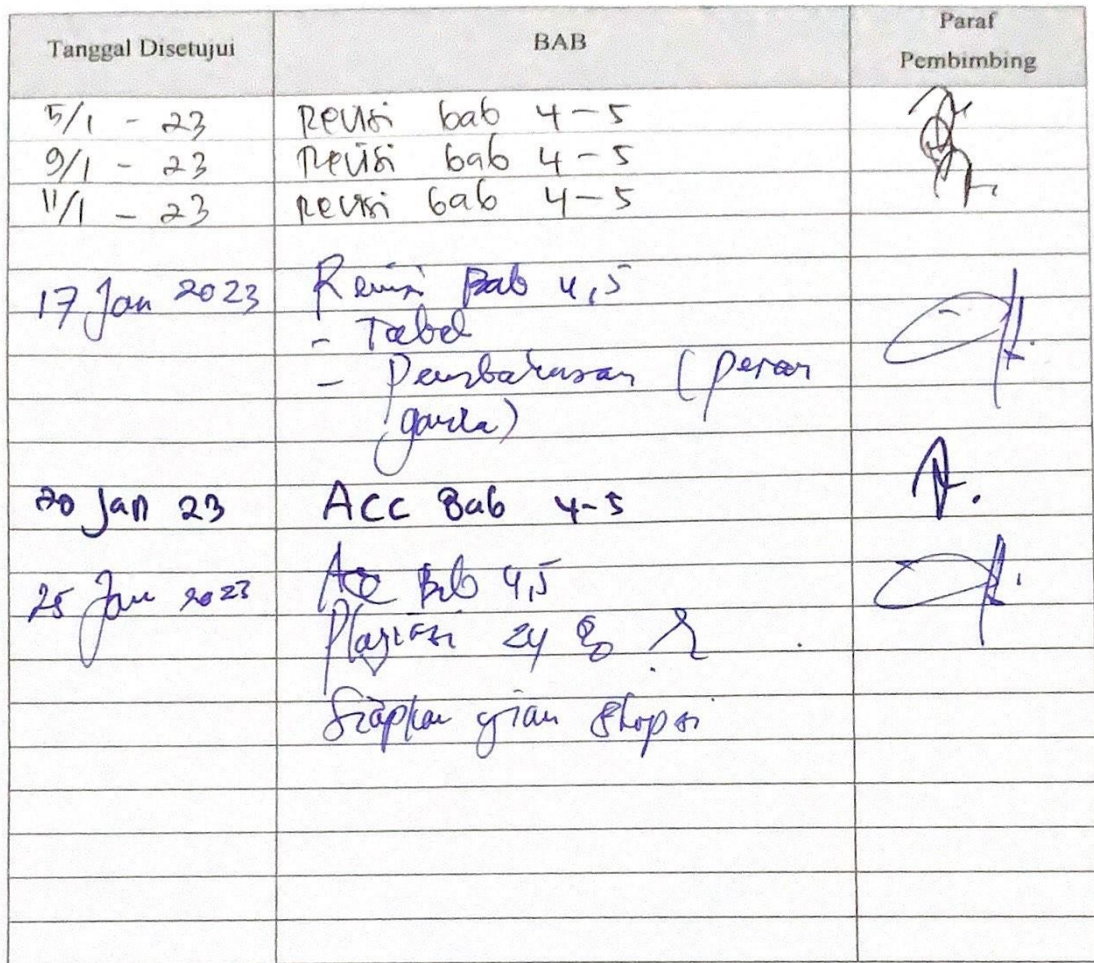 Tanggal Disetujui BAB Paraf
Pembimbing
5/1 - 23 Revisi bab 4-5
9/1 - 23 Revisi bab 4-5
11/1 - 23 Revisi bab 4-5
17 Jan 2023 Revisi Bab 4,5
- Tabel
- Pembahasan (peran
ganda)
20 Jan 23 ACC Bab 4-5
25 Jan 2023 Acc Bab 4,5
Plagiasi 24 %
Siapkan ujian skripsi